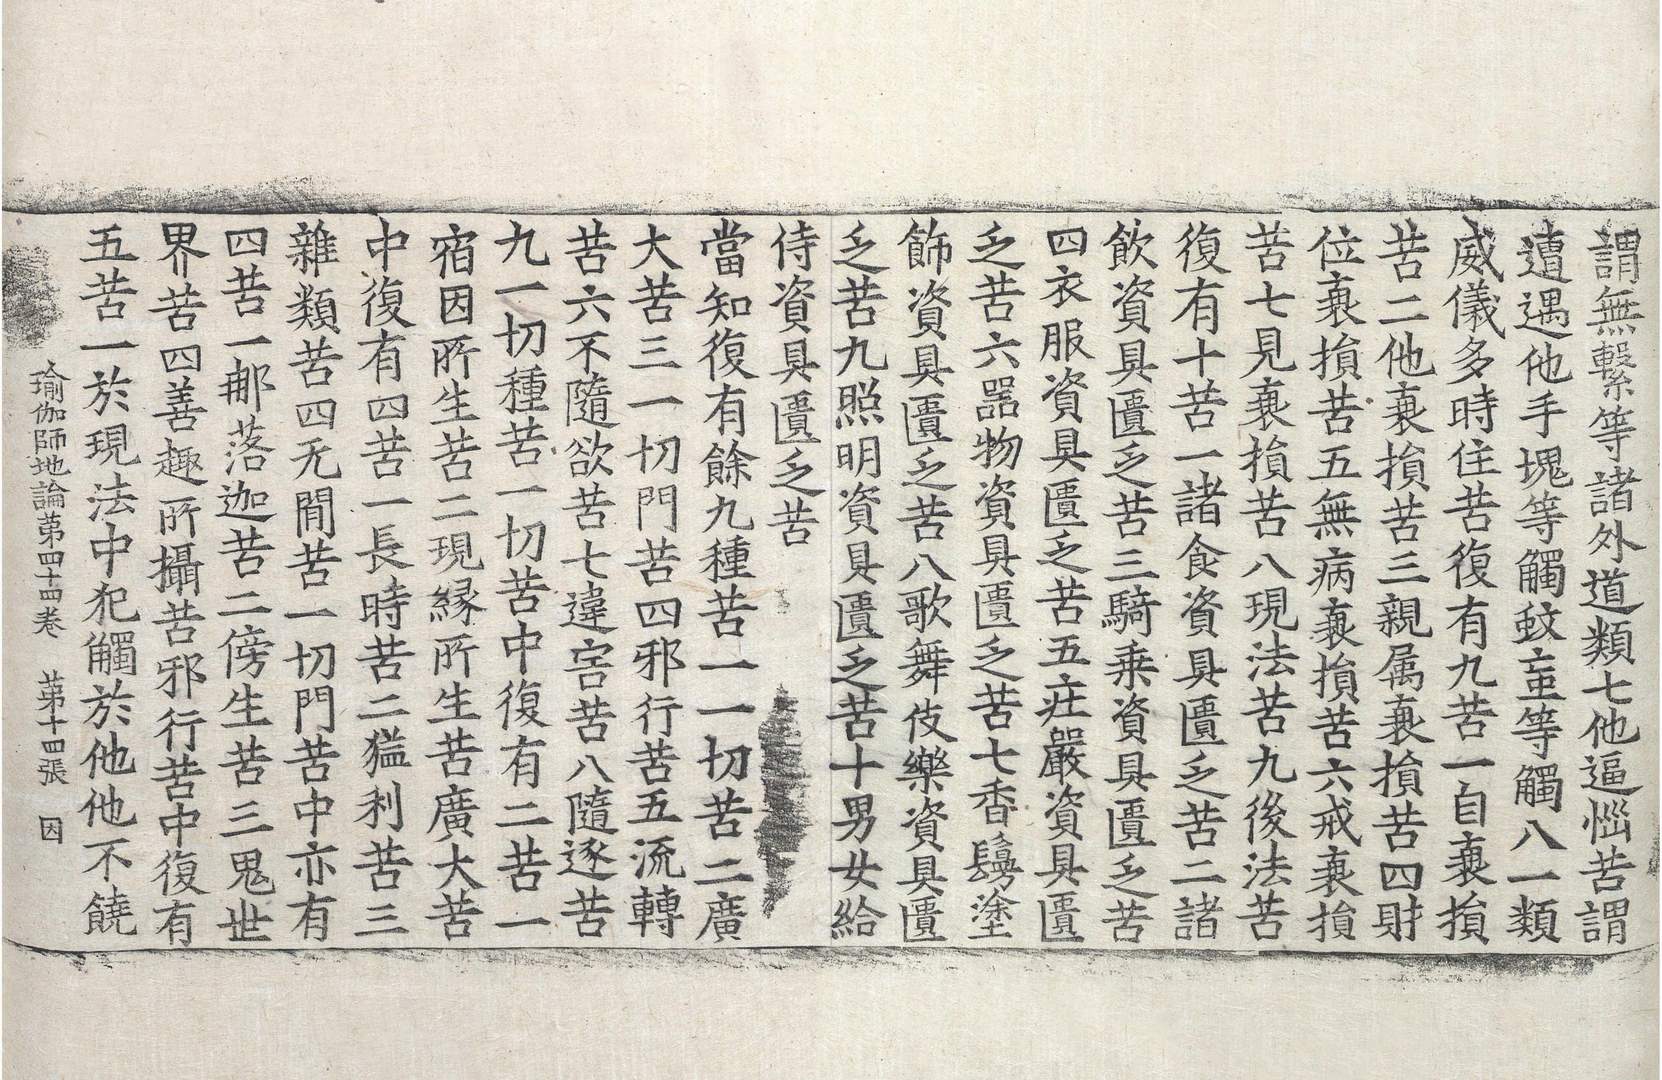 謂無繫等諸外道類七他逼惱苦謂
遭遇他手塊等觸蚊䖟等觸八一類
威儀多時住苦復有九苦一自衰損
苦二他衰損苦三親属衰損苦四財
位衰損苦五無病衰損苦六戒衰損
苦七見衰損苦八現法苦九後法苦
復有十苦一諸食資具匱乏苦二諸
飲資具匱乏苦三騎乗資具匱乏苦
四衣服資具匱乏苦五庄嚴資具匱
乏苦六器物資具匱乏苦七香鬘塗
飾資具匱乏苦八歌舞伎樂資具匱
乏苦九照明資具匱乏苦十男女給
侍資具匱乏苦
當知復有餘九種苦一一切苦二廣
大苦三一切門苦四邪行苦五流轉
苦六不隨欲苦七違害苦八隨逐苦
九一切種苦一切苦中復有二苦一
宿因所生苦二現縁所生苦廣大苦
中復有四苦一長時苦二猛利苦三
雜類苦四无間苦一切門苦中亦有
四苦一那落迦苦二傍生苦三鬼世
界苦四善趣所攝苦邪行苦中復有
五苦一於現法中犯觸於他他不饒
瑜伽師地論苐四十四卷 苐十四張 因